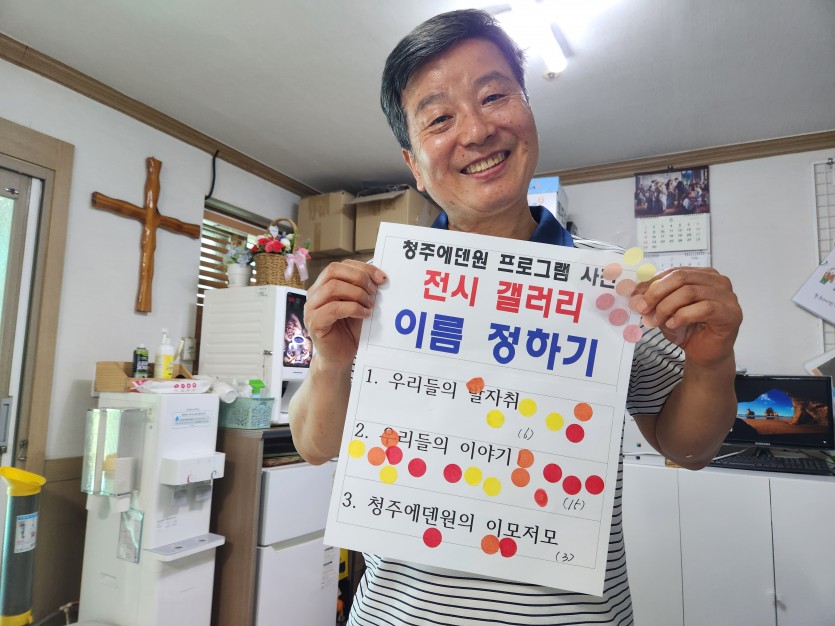 청주에덴원 프로그램 사진
전시 갤러리
이름 정하기
1. 우리들의 발자취
(6)
2. 우리들의 이야기
(15)
3. 청주에덴원의 이모저모
(3)